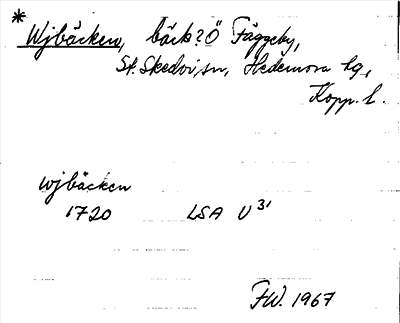 * Wjbäcken, bäck? Ö Fäggeby,
St. Skedvi sn, Hedemora tg,
Kopp. l.
wjbäcken
1720 LSA U³¹
FW. 1967